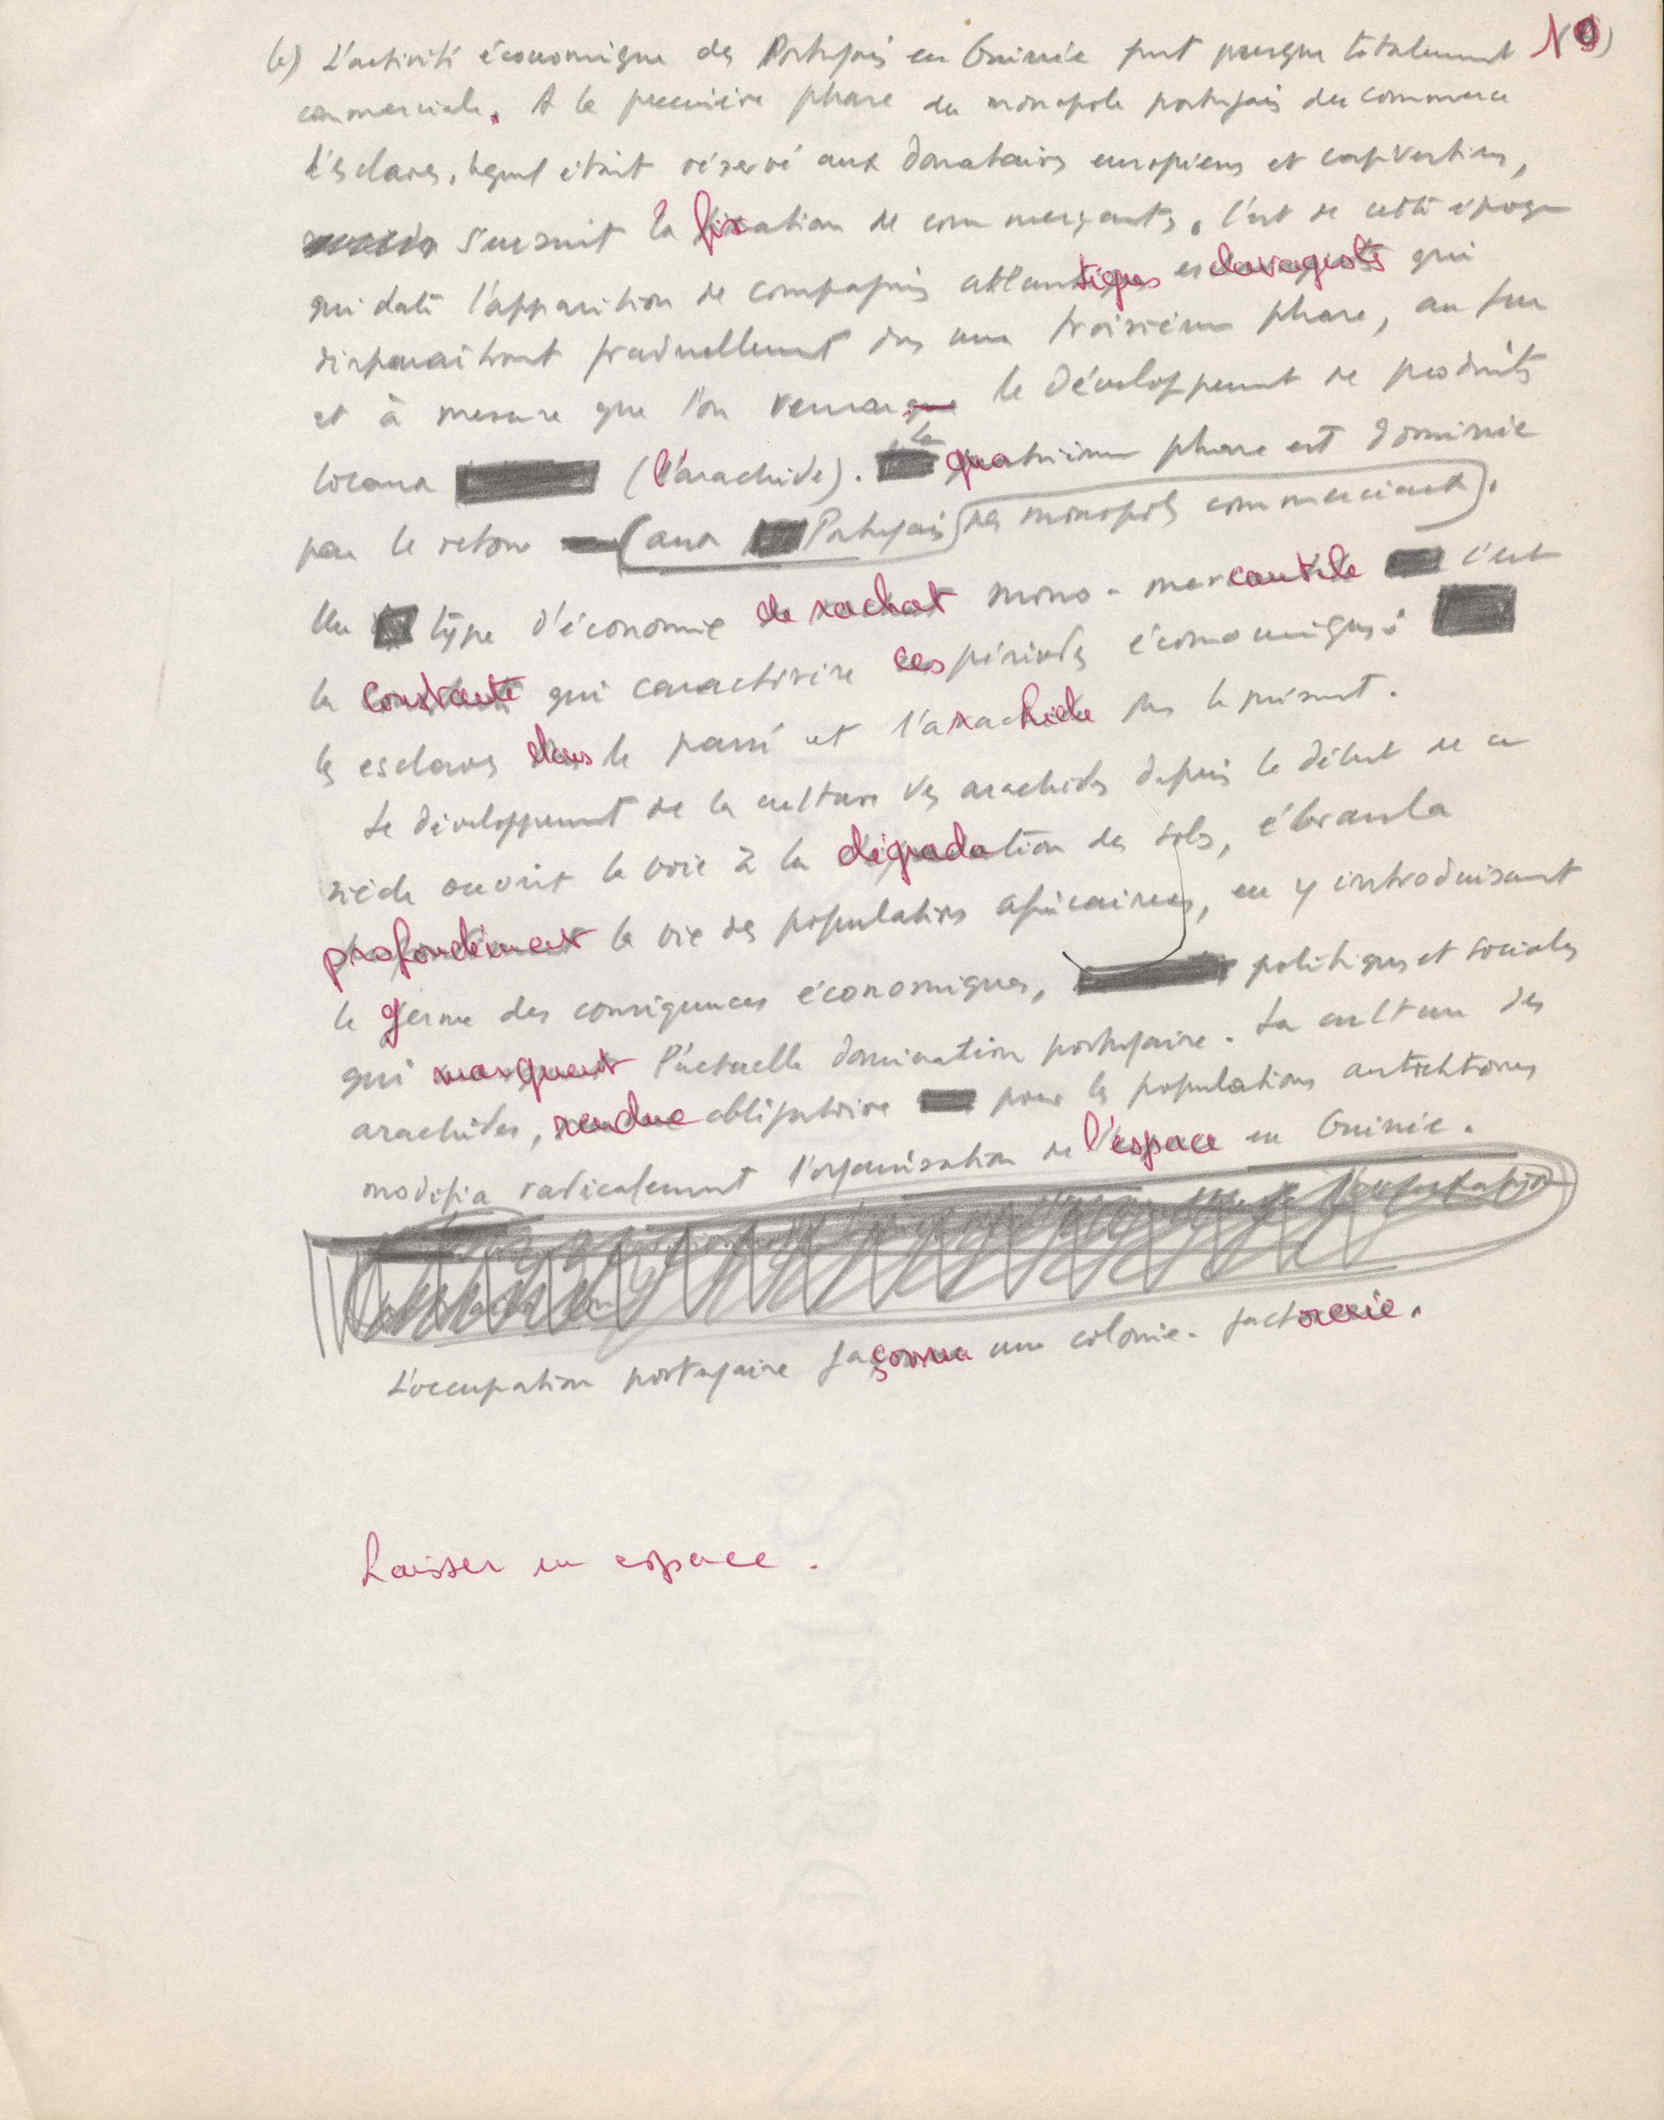 L'activité économique des Portugais en Guinée fut presque totalement
commerciale. A la première phase de monopole portugais du commerce
d'esclaves, lequel était réservé aux donataires européens et capverdiens,
s'ensuit la fixation de commerçants. C'est de cette époque
qui date l'apparition de compagnies atlantiques esclavagistes qui
disparaîtront graduellement dans une troisième phase, au fur
et à mesure que l'on le développement de produits
locaux (l'arachide). la quatrième phase est dominée
par le retour (aux Portugais) des monopoles commerciaux).
Un type d'économie de rachat mono-mercantile c'est
la constante qui caractérise ces périodes économiques:
les esclaves dans le passé et l'arachide dans le présent.
Le développement de la culture des arachides depuis le début de ce
siècle ouvrit la voie à la dégradation des sols, ébranla
profondément la vie des populations africaines, en y introduisant
le germe des conséquences économiques, politiques et sociales
qui marquent l'actuelle domination portugaise. La culture des
arachides, rendue obligatoire pour les populations autochtones
modifia radicalement l'organisation de l'espace en Guinée.
L'occupation portugaise façonna une colonie-factorerie.
Laisser un espace.